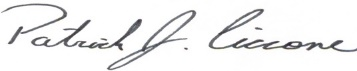 Patrick J. Ciccone